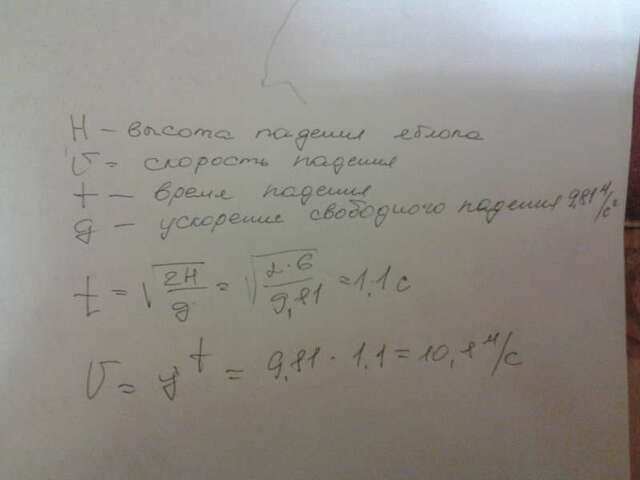 H – высота падения яблока
V = скорость падения
t – время падения
g – ускорение свободного падения 9,81 м/с²
t = √(2H/g) = √(2·6/9,81) = 1,1 с
V = gt = 9,81 · 1,1 = 10,8 м/с